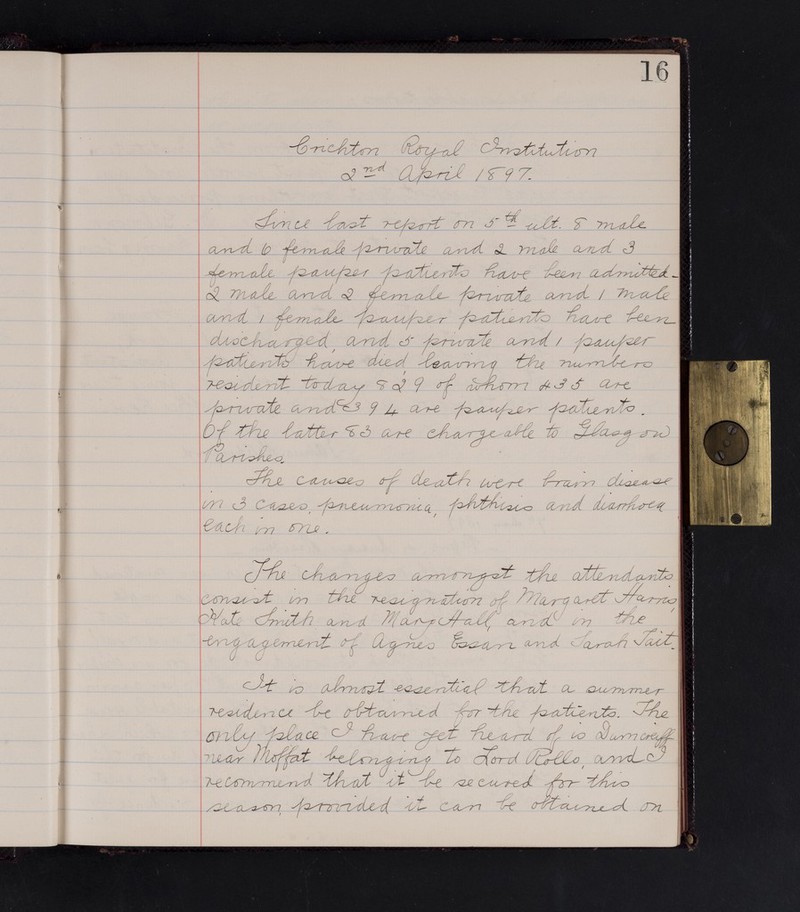 16
Crichton Royal Institution
2nd April 1897.
Since last report on 5th ult. 8 male
and 6 female private and 2 male and 3
female pauper patients have been admitted -
2 male and 2 female private and 1 male
and 1 female pauper patients have been
discharged, and 5 private and 1 pauper
patients have died, leaving the numbers
resident today 829 of whom 435 are
private and 394 are pauper patients.
Of the latter 83 are chargeable to Glasgow
Parishes.
The causes of death were brain disease
in 3 cases, pneumonia, phthisis and diarrhoea
each in one.
The changes amongst the attendants
consist in the resignation of Margaret Harris,
Kate Smith and Mary Hall, and in the
engagement of Agnes Essan and Sarah Tait.
It is almost essential that a summer
residence be obtained for the patients. The
only place I have yet heard of is Dumcrieff
near Moffat belonging to Lord Rollo, and I
recommend that it be secured for this
season, provided it can be obtained on